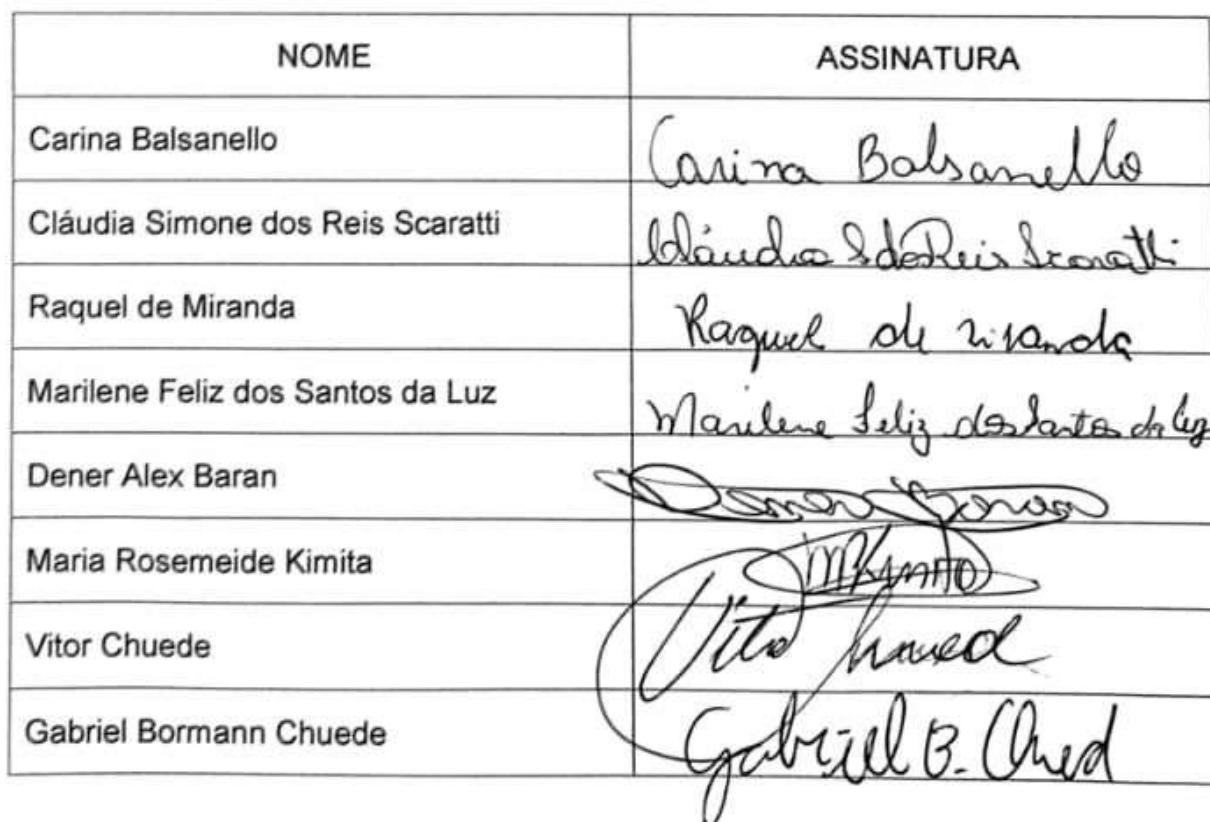 NOME ASSINATURA
Carina Balsanello Carina Balsanello
Cláudia Simone dos Reis Scaratti Cláudia S dos Reis Scaratti
Raquel de Miranda Raquel de Miranda
Marilene Feliz dos Santos da Luz Marilene Feliz dos Santos da Luz
Dener Alex Baran Dener Baran
Maria Rosemeide Kimita MKimita
Vitor Chuede Vitor
Gabriel Bormann Chuede Gabriel B. Chued